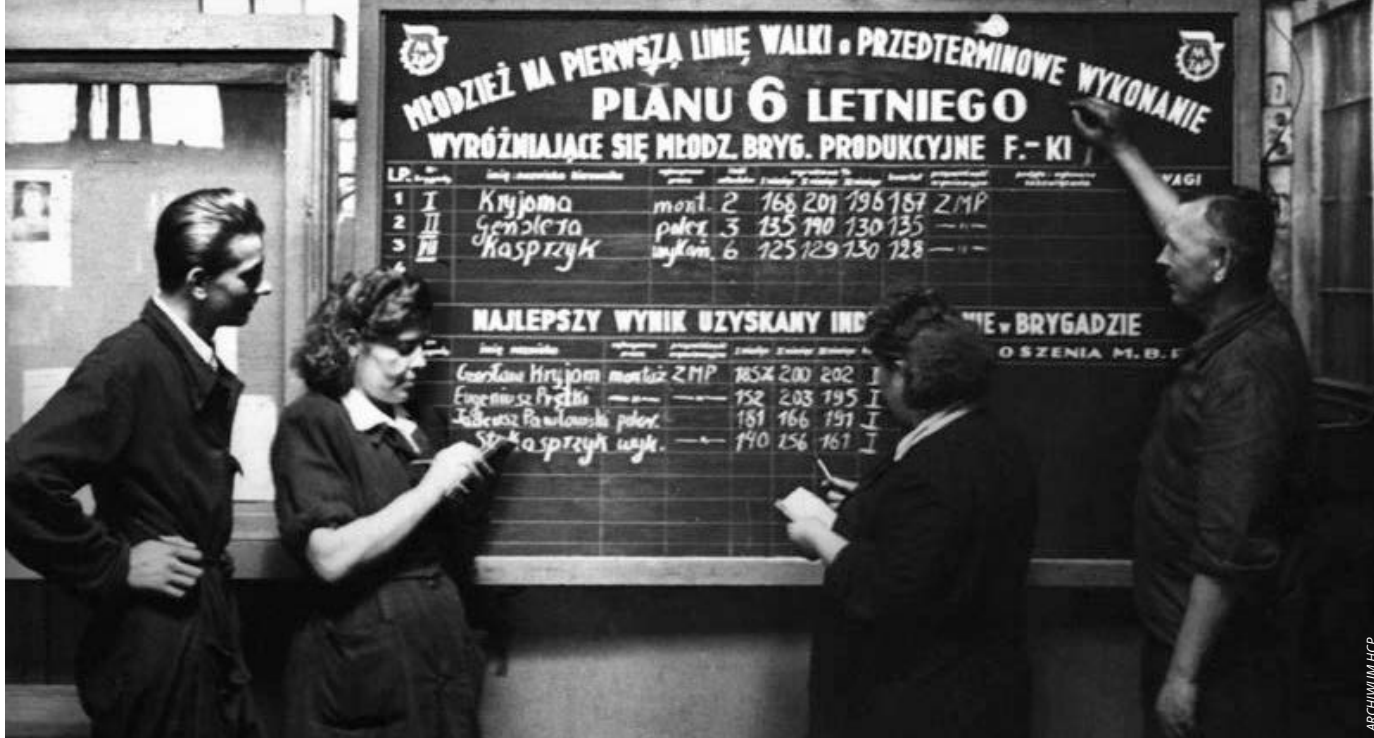 MŁODZIEŻ NA PIERWSZĄ LINIĘ WALKI o PRZEDTERMINOWE WYKONANIE
PLANU 6 LETNIEGO
WYRÓŻNIAJĄCE SIĘ MŁODZ. BRYG. PRODUKCYJNE F.-KI
LP. imię nazwisko kierownika WAGI
1 I Kryjoma mont. 2 168 201 196 187 ZMP
2 II polex. 3 135 190 130 135 —"—
3 Kasprzyk wykań. 6 125 129 130 128 —"—
4
NAJLEPSZY WYNIK UZYSKANY w BRYGADZIE
imię nazwisko OSZENIA M.B.P
Kryjom montaż ZMP 185% 200 202 I
Eugeniusz Prętki —"— —"— 152 203 195 I
Tadeusz Pawłowski polex. 181 166 191 I
St. Kasprzyk wyk. —"— 140 156 161 I
ARCHIWUM HCP